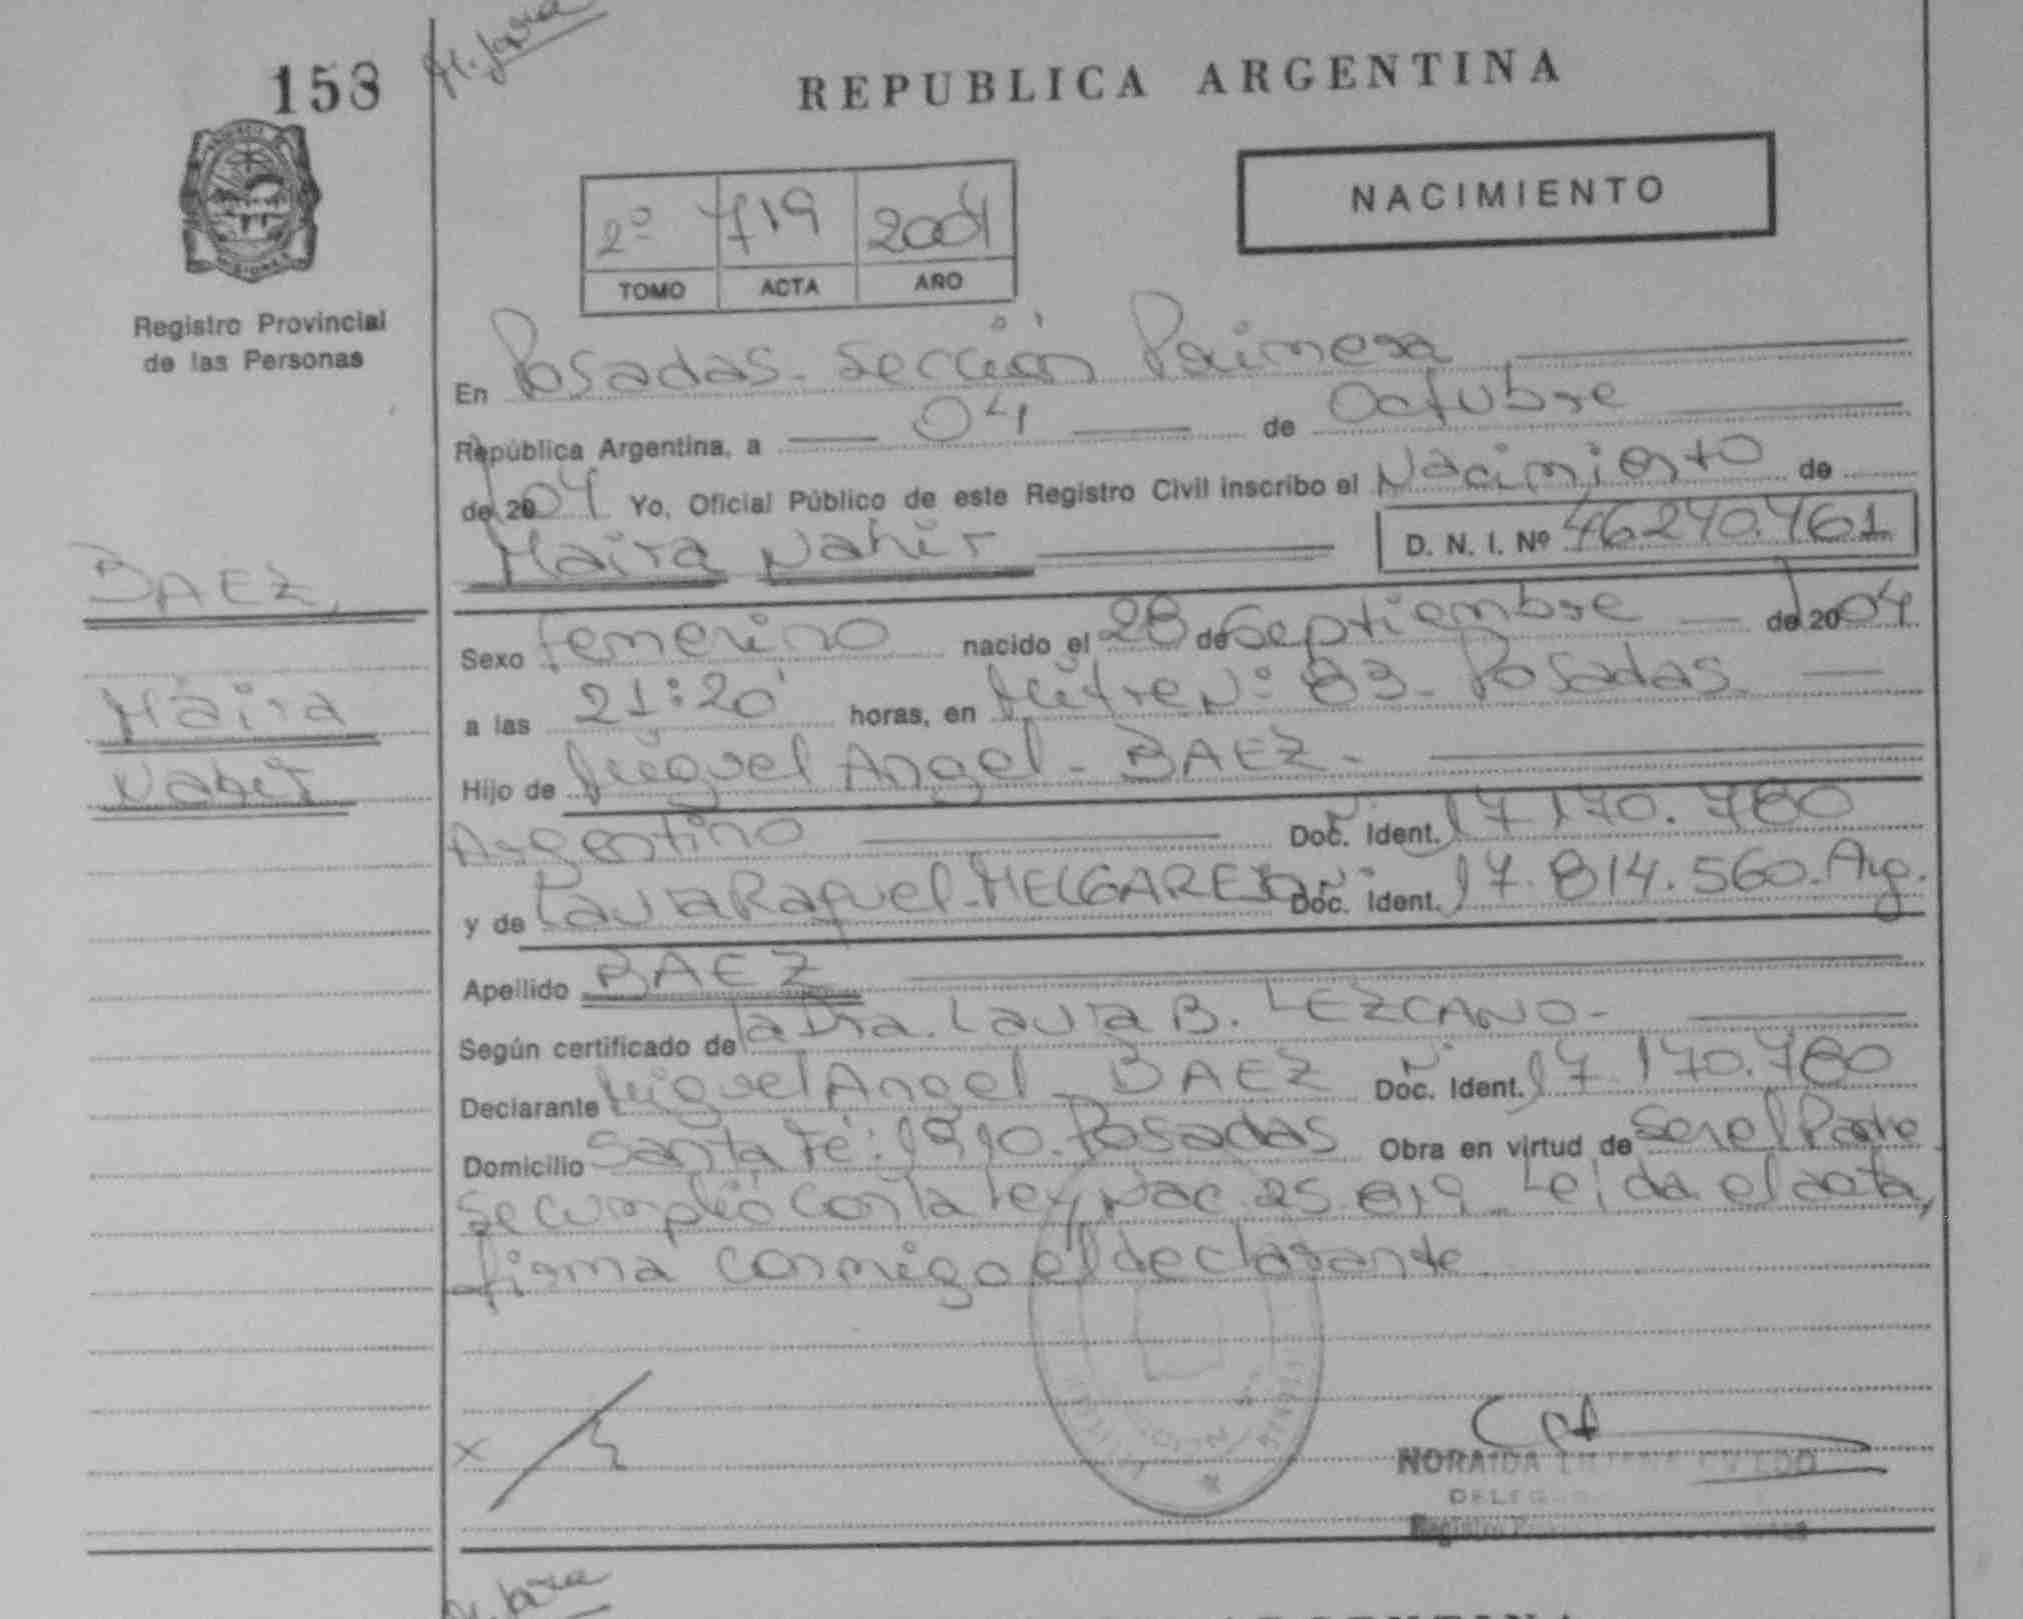 153
REPUBLICA ARGENTINA
NACIMIENTO
2º 719 2004
TOMO ACTA AÑO
Registro Provincial
de las Personas
En Posadas - Sección Primera
República Argentina, a 04 de Octubre
de 2004 Yo, Oficial Público de este Registro Civil inscribo el Nacimiento de
Maira Nahir D. N. I. Nº 46240.461
BAEZ,
Maira
Nahir
Sexo femenino nacido el 28 de Septiembre de 2004
a las 21:20 horas, en Mitre Nº 83 - Posadas
Hijo de Miguel Angel - BAEZ -
Argentino Doc. Ident. Nº 17.170.780
y de Laura Raquel - MELGAREJO Doc. Ident. Nº 17.814.560 - Arg.
Apellido BAEZ
Según certificado de la Dra. Laura B. LEZCANO -
Declarante Miguel Angel - BAEZ Doc. Ident. Nº 17.170.780
Domicilio Santa Fé: 1910 - Posadas Obra en virtud de ser el Padre
se cumplió con la ley Nac. 25.819 - Leida el acta,
firma conmigo el declarante
NORAIDA